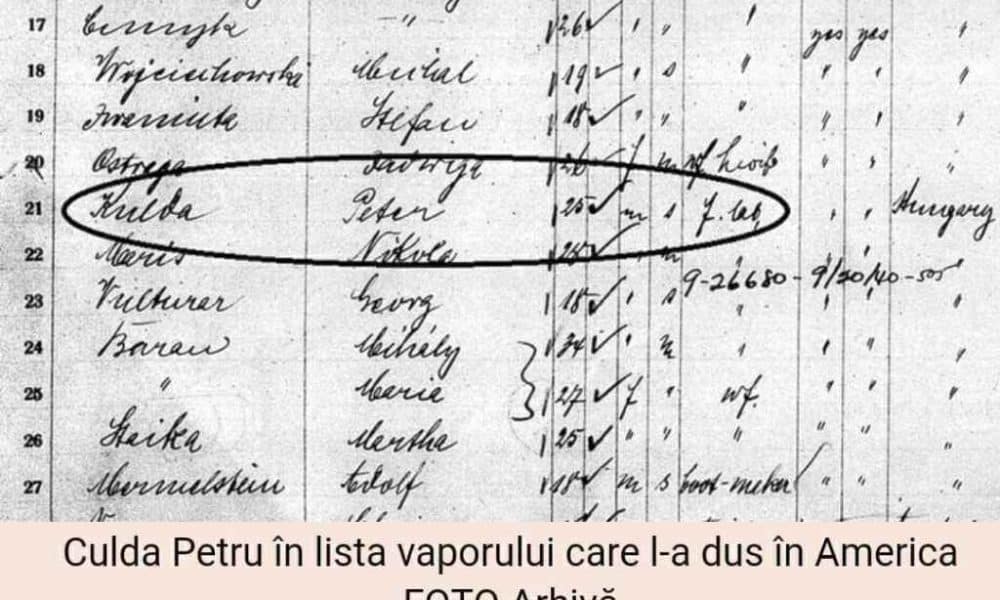 17 " 26 ✓ ' " ' yes yes "
18 Wojciechowski Michal 19 ✓ ' s " " " "
19 Iwaniuta Stefan 18 ✓ ' " " " " "
20 Ostrega Jadwiga 26 ✓ f m wife " " "
21 Kulda Peter 25 ✓ m s f. lab. " " Hungary
22 Maris Nikola ✓ " m
9-26680 - 9/20/40 -505
23 Vulturar Georg 18 ✓ ' s " " " "
24 Baran Mihály 34 ✓ ' m " " " "
25 " Maria 27 ✓ f " wf. " " "
26 Staika Martha 25 ✓ " " " " " "
27 Mermelstein Adolf 18 ✓ m s boot-maker " " "
Culda Petru în lista vaporului care l-a dus în America
FOTO Arhivă